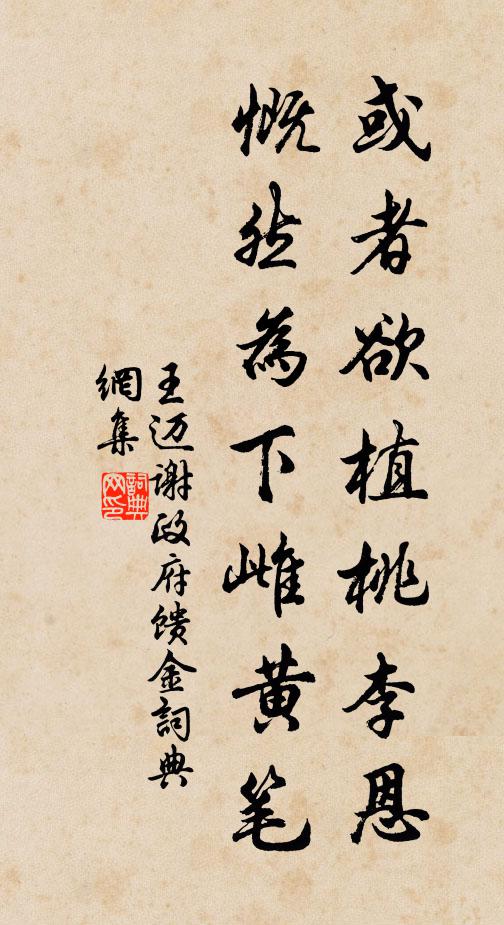 或者欲植桃李恩
慨然為下雌黄笔
王迈谢政府馈金詞典
網集
詞典网印